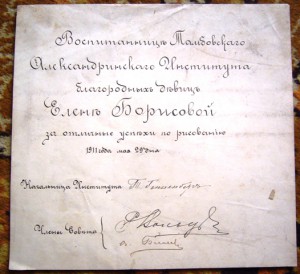 Воспитанницѣ Тамбовскаго
Александринскаго Института
благородныхъ дѣвицъ
Еленѣ Борисовой
за отличные успѣхи по рисованію
1911 года мая 29 дня
Начальница Института
Члены Совѣта